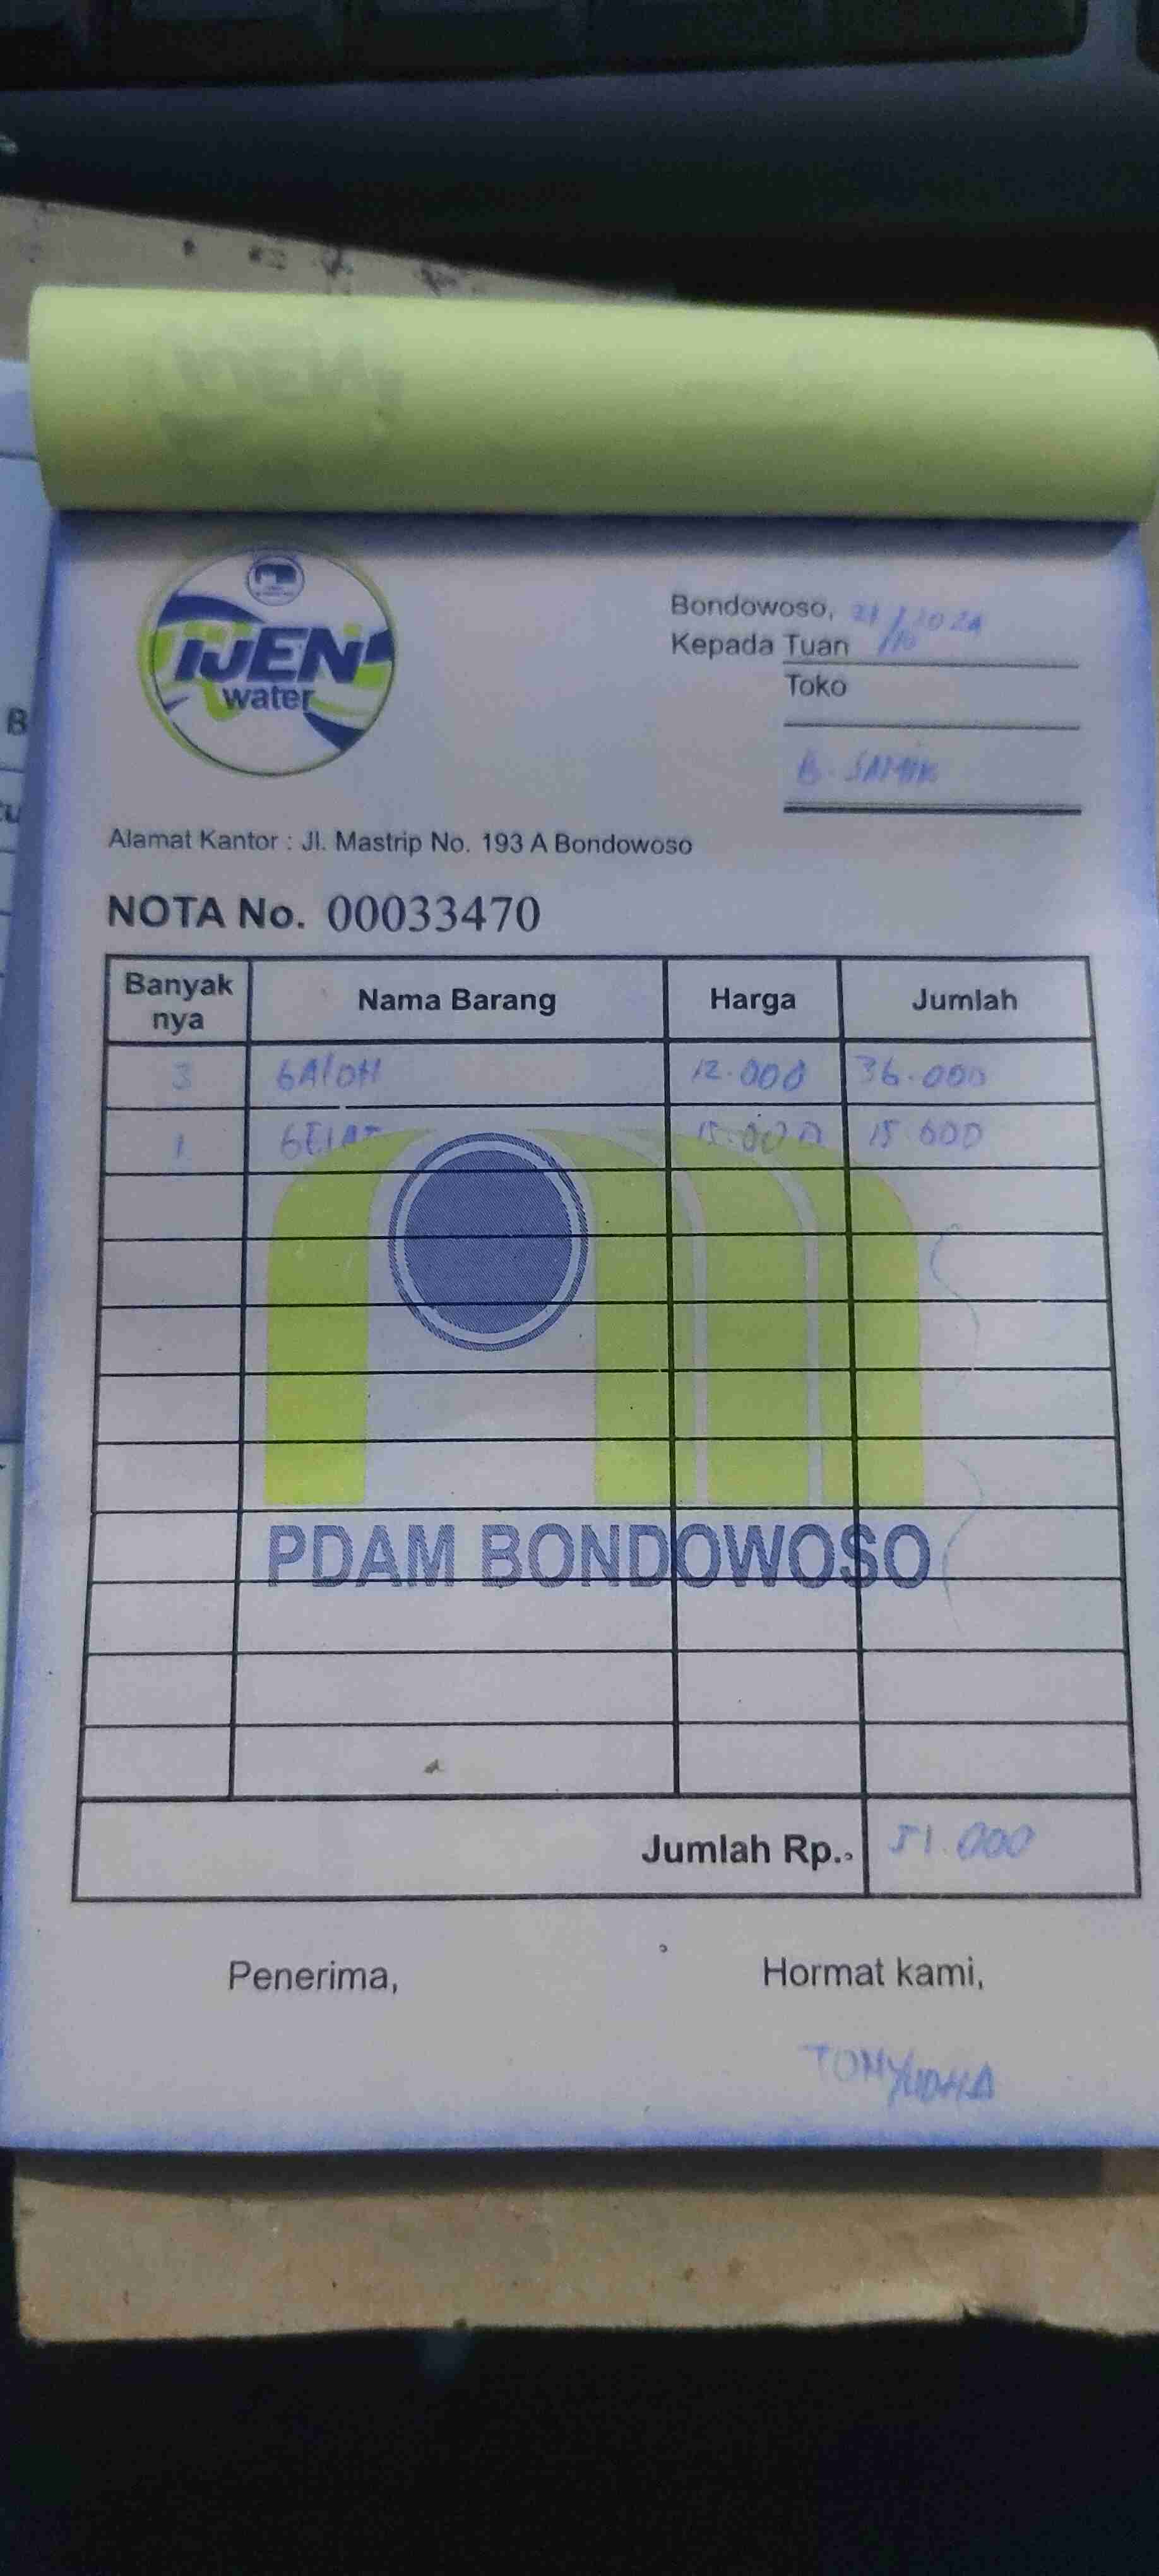 IJEN
water
Bondowoso, 21/10 2024
Kepada Tuan
Toko
B. SAMIK
Alamat Kantor : Jl. Mastrip No. 193 A Bondowoso
NOTA No. 00033470
Banyak nya Nama Barang Harga Jumlah
3 GALON 12.000 36.000
1 GELAS 15.000 15.000
PDAM BONDOWOSO
Jumlah Rp. 51.000
Penerima, Hormat kami,
TONY YUDHA